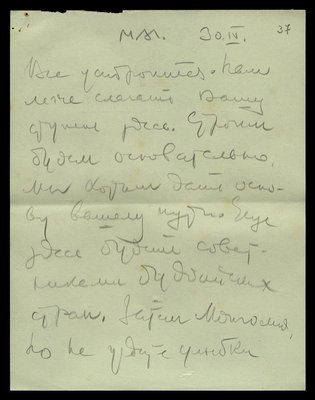 М∴М∴ 30.IV. 37
Все устроится. Нам
легче слагать Вашу
ступень здесь. Строить
будем основательно.
Мы хотим дать осно-
ву вашему пути. Еще
здесь будете совет-
никами буддийских
стран. Затем Монголия,
но не узкие улыбки